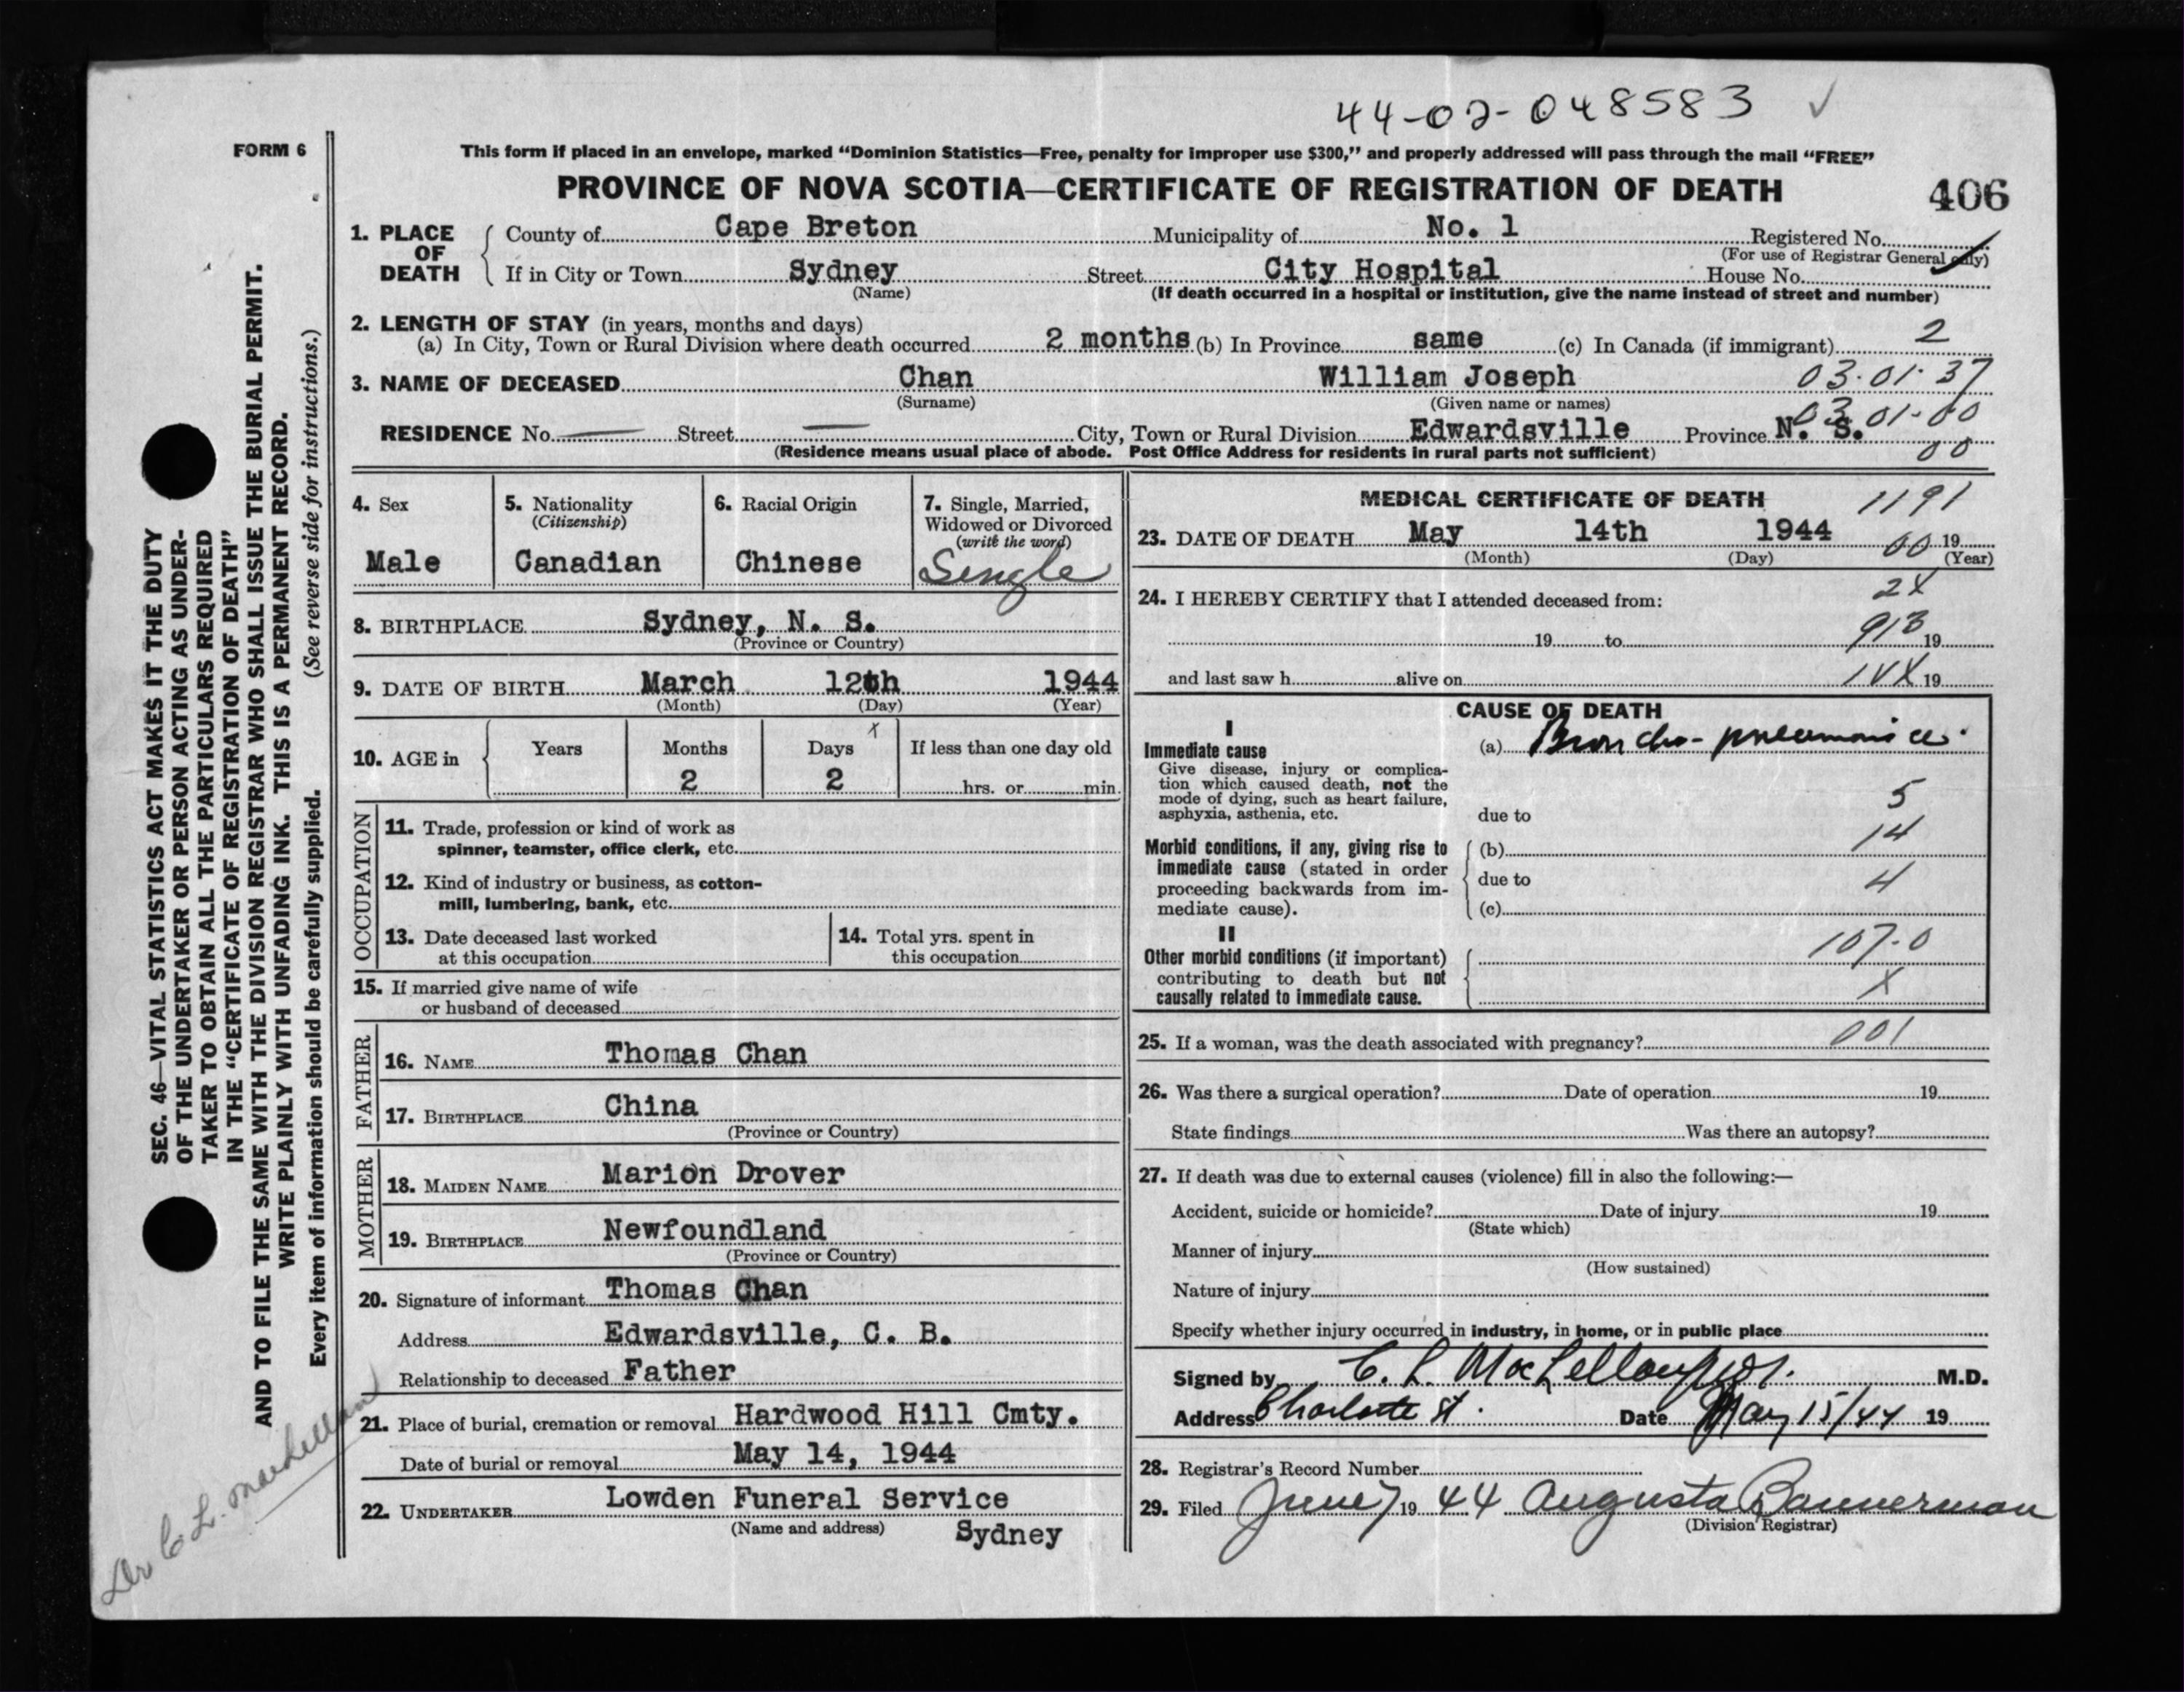 44-02-048583 ✓
FORM 6
This form if placed in an envelope, marked “Dominion Statistics—Free, penalty for improper use $300,” and properly addressed will pass through the mail “FREE”
PROVINCE OF NOVA SCOTIA—CERTIFICATE OF REGISTRATION OF DEATH 406
1. PLACE OF DEATH
County of Cape Breton Municipality of No. 1 Registered No.
(For use of Registrar General only)
If in City or Town Sydney Street City Hospital House No.
(Name) (If death occurred in a hospital or institution, give the name instead of street and number)
2. LENGTH OF STAY (in years, months and days)
(a) In City, Town or Rural Division where death occurred 2 months (b) In Province same (c) In Canada (if immigrant) 2
3. NAME OF DECEASED Chan William Joseph 03.01.37
(Surname) (Given name or names)
03.01-00
RESIDENCE No. — Street — City, Town or Rural Division Edwardsville Province N. S.
(Residence means usual place of abode. Post Office Address for residents in rural parts not sufficient) 00
4. Sex
Male
5. Nationality
(Citizenship)
Canadian
6. Racial Origin
Chinese
7. Single, Married,
Widowed or Divorced
(write the word)
Single
8. BIRTHPLACE Sydney, N. S.
(Province or Country)
9. DATE OF BIRTH March 12th 1944
(Month) (Day) (Year)
x
10. AGE in Years Months Days If less than one day old
2 2 hrs. or min.
OCCUPATION
11. Trade, profession or kind of work as
spinner, teamster, office clerk, etc.
12. Kind of industry or business, as cotton-
mill, lumbering, bank, etc.
13. Date deceased last worked
at this occupation
14. Total yrs. spent in
this occupation
15. If married give name of wife
or husband of deceased
FATHER
16. NAME Thomas Chan
17. BIRTHPLACE China
(Province or Country)
MOTHER
18. MAIDEN NAME Marion Drover
19. BIRTHPLACE Newfoundland
(Province or Country)
20. Signature of informant Thomas Chan
Address Edwardsville, C. B.
Relationship to deceased Father
21. Place of burial, cremation or removal Hardwood Hill Cmty.
Date of burial or removal May 14, 1944
22. UNDERTAKER Lowden Funeral Service
(Name and address) Sydney
MEDICAL CERTIFICATE OF DEATH 1191
23. DATE OF DEATH May 14th 1944 00 19
(Month) (Day) (Year)
24. I HEREBY CERTIFY that I attended deceased from: 2X
19 to 913 19
and last saw h alive on 1VX 19
CAUSE OF DEATH
I
Immediate cause (a) Broncho-pneumonia.
Give disease, injury or complica-
tion which caused death, not the
mode of dying, such as heart failure,
asphyxia, asthenia, etc. due to 5
Morbid conditions, if any, giving rise to (b) 14
immediate cause (stated in order
proceeding backwards from im- due to 4
mediate cause). (c)
II
Other morbid conditions (if important) 107-0
contributing to death but not
causally related to immediate cause. X
25. If a woman, was the death associated with pregnancy? 001
26. Was there a surgical operation? Date of operation 19
State findings Was there an autopsy?
27. If death was due to external causes (violence) fill in also the following:—
Accident, suicide or homicide? Date of injury 19
(State which)
Manner of injury
(How sustained)
Nature of injury
Specify whether injury occurred in industry, in home, or in public place
Signed by C. L. MacLellan M.D.
Address Charlotte St. Date May 15/44 19
28. Registrar's Record Number
29. Filed June 7 19 44 Augusta Bannerman
(Division Registrar)
SEC. 46—VITAL STATISTICS ACT MAKES IT THE DUTY
OF THE UNDERTAKER OR PERSON ACTING AS UNDER-
TAKER TO OBTAIN ALL THE PARTICULARS REQUIRED
IN THE “CERTIFICATE OF REGISTRATION OF DEATH”
AND TO FILE THE SAME WITH THE DIVISION REGISTRAR WHO SHALL ISSUE THE BURIAL PERMIT.
WRITE PLAINLY WITH UNFADING INK. THIS IS A PERMANENT RECORD.
Every item of information should be carefully supplied. (See reverse side for instructions.)
Dr C. L. MacLellan